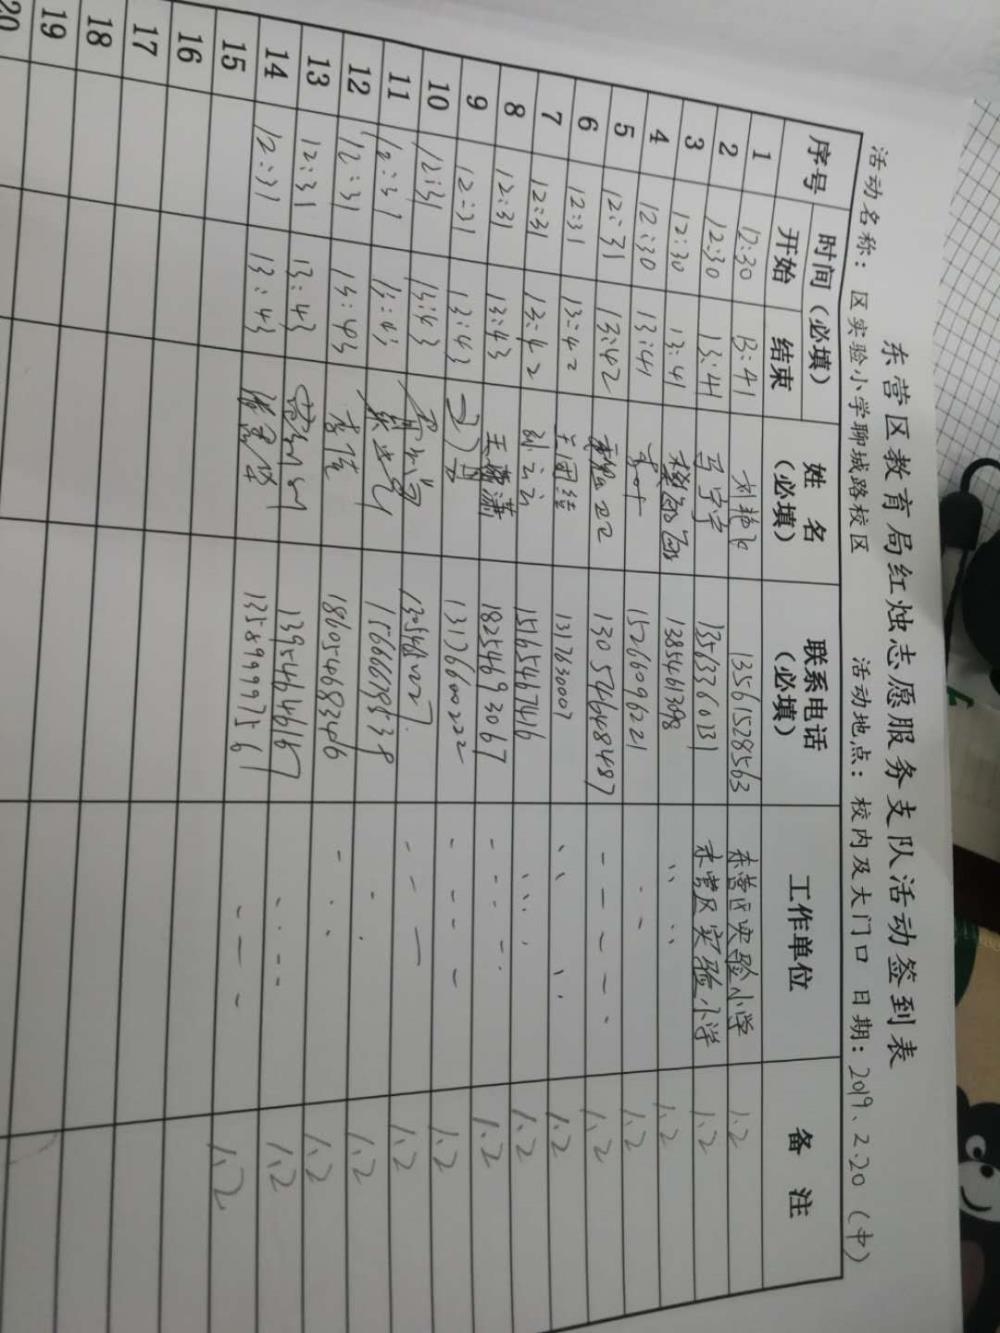 东营区教育局红烛志愿服务支队活动签到表
活动名称：区实验小学聊城路校区 活动地点：校内及大门口 日期：2019、2.20（中）
序号 时间（必填） 姓名（必填） 联系电话（必填） 工作单位 备注
开始 结束
1 12:30 13:41 刘艳 13561528563 东营区实验小学 1.2
2 12:30 13:41 马宁宁 13563360131 东营区实验小学 1.2
3 12:30 13:41 13854613098 〃 〃 1.2
4 12:30 13:41 15266096221 1.2
5 12:31 13:42 13054648487 1.2
6 12:31 13:42 13176300007 〃 1.2
7 12:31 13:42 孙云云 15165467416 1.2
8 12:31 13:43 王潇潇 18254693067 1.2
9 12:31 13:43 13176600222 1.2
10 12:31 13:43 1.2
11 12:31 13:43 15666639539 1.2
12 12:31 13:43 李佳 18605468346 1.2
13 12:31 13:43 13954646167 1.2
14 12:31 13:43 1358999756 1.2
15
16
17
18
19
20